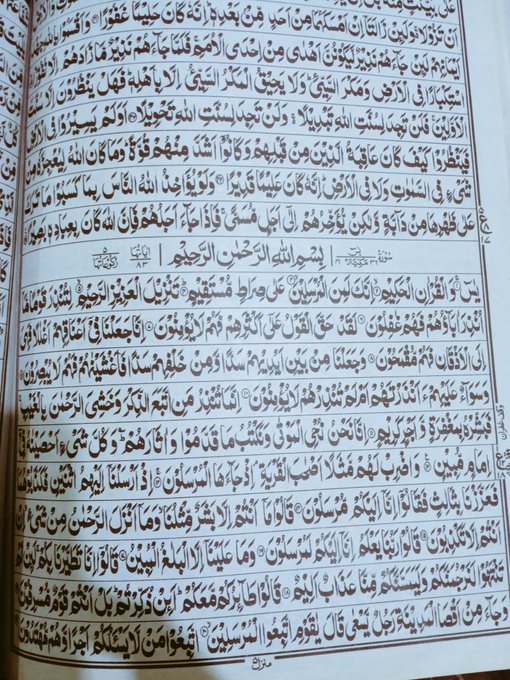 اَنْ تَزُوْلَا ۚ وَلَئِنْ زَالَتَاۤ اِنْ اَمْسَكَهُمَا مِنْ اَحَدٍ مِّنْۢ بَعْدِهٖ ؕ اِنَّهٗ كَانَ حَلِيْمًا غَفُوْرًا ۝ وَاَقْسَمُوْا
اَيْمَانِهِمْ لَئِنْ جَآءَهُمْ نَذِيْرٌ لَّيَكُوْنُنَّ اَهْدٰى مِنْ اِحْدَى الْاُمَمِ ۚ فَلَمَّا جَآءَهُمْ نَذِيْرٌ مَّا زَادَهُمْ اِلَّا
اسْتِكْبَارًا فِى الْاَرْضِ وَمَكْرَ السَّيِّئِ ؕ وَلَا يَحِيْقُ الْمَكْرُ السَّيِّئُ اِلَّا بِاَهْلِهٖ ؕ فَهَلْ يَنْظُرُوْنَ اِلَّا
الْاَوَّلِيْنَ ۚ فَلَنْ تَجِدَ لِسُنَّتِ اللّٰهِ تَبْدِيْلًا ۚ وَلَنْ تَجِدَ لِسُنَّتِ اللّٰهِ تَحْوِيْلًا ۝ اَوَلَمْ يَسِيْرُوْا فِى الْاَرْضِ
فَيَنْظُرُوْا كَيْفَ كَانَ عَاقِبَةُ الَّذِيْنَ مِنْ قَبْلِهِمْ وَكَانُوْۤا اَشَدَّ مِنْهُمْ قُوَّةً ؕ وَمَا كَانَ اللّٰهُ لِيُعْجِزَهٗ
شَىْءٍ فِى السَّمٰوٰتِ وَلَا فِى الْاَرْضِ ؕ اِنَّهٗ كَانَ عَلِيْمًا قَدِيْرًا ۝ وَلَوْ يُؤَاخِذُ اللّٰهُ النَّاسَ بِمَا كَسَبُوْا مَا تَرَكَ
عَلٰى ظَهْرِهَا مِنْ دَآبَّةٍ وَّلٰكِنْ يُّؤَخِّرُهُمْ اِلٰۤى اَجَلٍ مُّسَمًّى ۚ فَاِذَا جَآءَ اَجَلُهُمْ فَاِنَّ اللّٰهَ كَانَ بِعِبَادِهٖ بَصِيْرًا ۝
بِسْمِ اللّٰهِ الرَّحْمٰنِ الرَّحِيْمِ اٰيَاتُهَا ٨٣ رُكُوْعَاتُهَا ٥
يٰسٓ ۝ وَالْقُرْاٰنِ الْحَكِيْمِ ۝ اِنَّكَ لَمِنَ الْمُرْسَلِيْنَ ۝ عَلٰى صِرَاطٍ مُّسْتَقِيْمٍ ۝ تَنْزِيْلَ الْعَزِيْزِ الرَّحِيْمِ ۝ لِتُنْذِرَ قَوْمًا مَّاۤ
اُنْذِرَ اٰبَآؤُهُمْ فَهُمْ غٰفِلُوْنَ ۝ لَقَدْ حَقَّ الْقَوْلُ عَلٰۤى اَكْثَرِهِمْ فَهُمْ لَا يُؤْمِنُوْنَ ۝ اِنَّا جَعَلْنَا فِىْۤ اَعْنَاقِهِمْ اَغْلٰلًا فَهِىَ
اِلَى الْاَذْقَانِ فَهُمْ مُّقْمَحُوْنَ ۝ وَجَعَلْنَا مِنْۢ بَيْنِ اَيْدِيْهِمْ سَدًّا وَّمِنْ خَلْفِهِمْ سَدًّا فَاَغْشَيْنٰهُمْ فَهُمْ لَا يُبْصِرُوْنَ ۝
وَسَوَآءٌ عَلَيْهِمْ ءَاَنْذَرْتَهُمْ اَمْ لَمْ تُنْذِرْهُمْ لَا يُؤْمِنُوْنَ ۝ اِنَّمَا تُنْذِرُ مَنِ اتَّبَعَ الذِّكْرَ وَخَشِىَ الرَّحْمٰنَ بِالْغَيْبِ ۚ
فَبَشِّرْهُ بِمَغْفِرَةٍ وَّاَجْرٍ كَرِيْمٍ ۝ اِنَّا نَحْنُ نُحْىِ الْمَوْتٰى وَنَكْتُبُ مَا قَدَّمُوْا وَاٰثَارَهُمْ ؕ وَكُلَّ شَىْءٍ اَحْصَيْنٰهُ فِىْۤ
اِمَامٍ مُّبِيْنٍ ۝ وَاضْرِبْ لَهُمْ مَّثَلًا اَصْحٰبَ الْقَرْيَةِ ۘ اِذْ جَآءَهَا الْمُرْسَلُوْنَ ۝ اِذْ اَرْسَلْنَاۤ اِلَيْهِمُ اثْنَيْنِ فَكَذَّبُوْهُمَا
فَعَزَّزْنَا بِثَالِثٍ فَقَالُوْۤا اِنَّاۤ اِلَيْكُمْ مُّرْسَلُوْنَ ۝ قَالُوْا مَاۤ اَنْتُمْ اِلَّا بَشَرٌ مِّثْلُنَا ۙ وَمَاۤ اَنْزَلَ الرَّحْمٰنُ مِنْ شَىْءٍ ۙ اِنْ
اَنْتُمْ اِلَّا تَكْذِبُوْنَ ۝ قَالُوْا رَبُّنَا يَعْلَمُ اِنَّاۤ اِلَيْكُمْ لَمُرْسَلُوْنَ ۝ وَمَا عَلَيْنَاۤ اِلَّا الْبَلٰغُ الْمُبِيْنُ ۝ قَالُوْۤا اِنَّا تَطَيَّرْنَا بِكُمْ ۚ لَئِنْ لَّمْ
تَنْتَهُوْا لَنَرْجُمَنَّكُمْ وَلَيَمَسَّنَّكُمْ مِّنَّا عَذَابٌ اَلِيْمٌ ۝ قَالُوْا طَآئِرُكُمْ مَّعَكُمْ ؕ اَئِنْ ذُكِّرْتُمْ ؕ بَلْ اَنْتُمْ قَوْمٌ مُّسْرِفُوْنَ ۝
وَجَآءَ مِنْ اَقْصَا الْمَدِيْنَةِ رَجُلٌ يَّسْعٰى قَالَ يٰقَوْمِ اتَّبِعُوا الْمُرْسَلِيْنَ ۝ اتَّبِعُوْا مَنْ لَّا يَسْـَٔلُكُمْ اَجْرًا وَّهُمْ مُّهْتَدُوْنَ ۝
منزل ٥